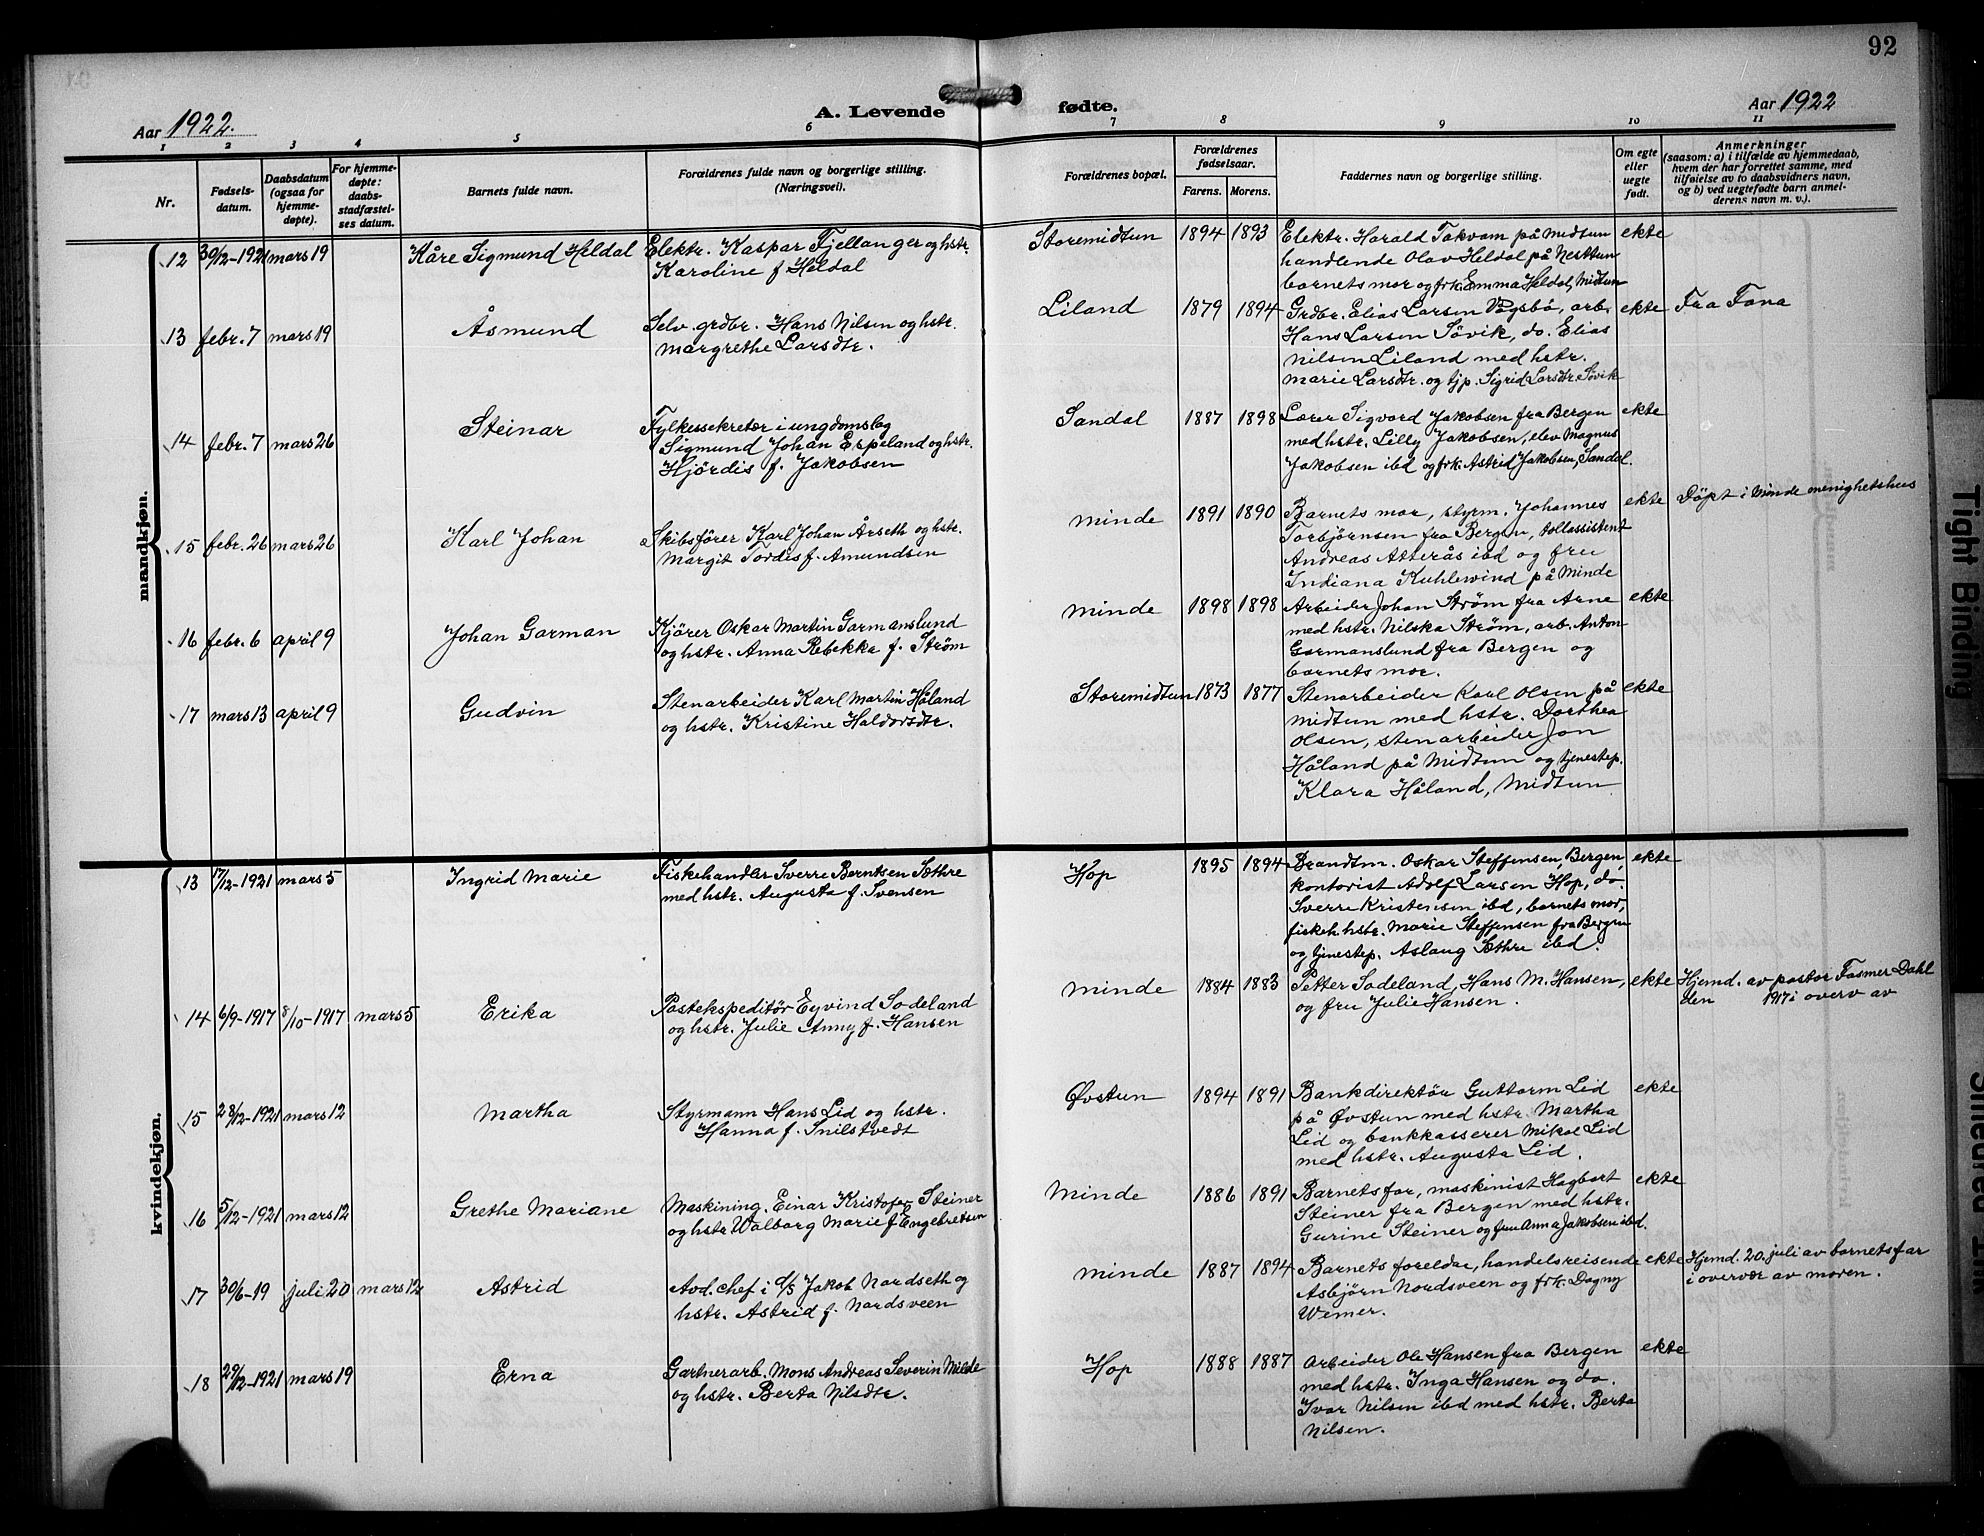 92
Aar 1922.
A. Levende fødte.
Aar 1922
1 2 3 4 5 6 7 8 9 10 11
Nr.
Fødsels-
datum.
Daabsdatum
(ogsaa for
hjemme-
døpte).
For hjemme-
døpte:
daabs-
stadfæstel-
ses datum.
Barnets fulde navn.
Forældrenes fulde navn og borgerlige stilling.
(Næringsvei).
Forældrenes bopæl.
Forældrenes
fødselsaar.
Farens. Morens.
Faddernes navn og borgerlige stilling.
Om egte
eller
uegte
født.
Anmerkninger
(saasom: a) i tilfælde av hjemmedaab,
hvem der har forrettet samme, med
tilføielse av to daabsvidners navn,
og b) ved uegtefødte barn anmel-
derens navn m. v.).
mandkjøn.
12 30/12-1921 mars 19 Kåre Sigmund Heldal Elektr. Kaspar Fjellanger og hstr.
Karoline f. Heldal
Storemidtun 1894 1893 Elektr. Harald Takvam på Midtun ekte
handlende Olav Heldal på Nesttun
barnets mor og frk. Emma Heldal, Midtun
13 febr. 7 mars 19 Åsmund Selv. grdbr. Hans Nilsen og hstr.
Margrethe Larsdtr.
Liland 1879 1894 Grdbr. Elias Larsen Vågsbø, arb. ekte Fra Fana
Hans Larsen Søvik, do. Elias
Nilsen Liland med hstr.
Marie Larsdtr. og tjp. Sigrid Larsdtr. Søvik
14 febr. 7 mars 26 Steinar Fylkessekretær i ungdomslag
Sigmund Johan Espeland og hstr.
Hjördis f. Jakobsen
Sandal 1887 1898 Lærer Sigvard Jakobsen fra Bergen ekte
med hstr. Lilly Jakobsen, elev Magnus
Jakobsen ibd og frk. Astrid Jakobsen, Sandal.
15 febr. 26 mars 26 Karl Johan Skibsfører Karl Johan Årseth og hstr.
Margit Tordis f. Amundsen
Minde 1891 1890 Barnets mor, styrm. Johannes ekte Döpt i Minde menighetshus
Torbjørnsen fra Bergen, tollassistent
Andreas Atterås ibd og fru
Indiana Kuhlewind på Minde
16 febr. 6 april 9 Johan Garman Kjører Oskar Martin Garmanslund
og hstr. Anna Rebekka f. Strøm
Minde 1898 1898 Arbeider Johan Strøm fra Arne ekte
med hstr. Nilska Strøm, arb. Anton
Garmanslund fra Bergen og
barnets mor.
17 mars 13 april 9 Gudvin Stenarbeider Karl Martin Håland
og hstr. Kristine Haldorsdtr.
Storemidtun 1873 1877 Stenarbeider Karl Olsen på ekte
Midtun med hstr. Dorthea
Olsen, stenarbeider Jon
Håland på Midtun og tjenestep.
Klara Håland, Midtun
kvindekjøn.
13 17/12-1921 mars 5 Ingrid Marie Fiskehandler Sverre Berntsen Sæthre
med hstr. Augusta f. Svensen
Hop 1895 1894 Brandtm. Oskar Steffensen, Bergen, ekte
kontorist Adolf Larsen Hop, do.
Sverre Kristensen ibd, barnets mor,
fiskeh. hstr. Marie Steffensen fra Bergen
og tjenestep. Aslaug Sæthre ibd.
14 6/9-1917 8/10-1917 mars 5 Erika Postekspeditör Eyvind Sodeland
og hstr. Julie Anny f. Hansen
Minde 1884 1883 Petter Sodeland, Hans M. Hansen, ekte Hjemd. av pastor Fasmer Dahl
og fru Julie Hansen. den 1917 i overv av
15 28/12-1921 mars 12 Martha Styrmann Hans Lid og hstr.
Hanna f. Snilstvedt
Øvstun 1894 1891 Bankdirektör Guttorm Lid ekte
på Øvstun med hstr. Martha
Lid og bankkasserer Mikal Lid
med hstr. Augusta Lid.
16 5/12-1921 mars 12 Grethe Mariane Maskining. Einar Kristofer Steiner
og hstr Walborg Marie f. Engebretsen
Minde 1886 1891 Barnets far, maskinist Hagbart ekte
Steiner fra Bergen med hstr.
Gurine Steiner og fru Anna Jakobsen ibd.
17 30/6-19 juli 20 mars 12 Astrid Avd. chef i A/S Jakob Nordseth og
hstr. Astrid f. Nordsveen
Minde 1887 1894 Barnets foreldre, handelsreisende ekte Hjemd. 20. juli av barnets far
Asbjörn Nordsveen og frk. Dagny i overvær av moren.
Weimer.
18 29/12-1921 mars 19 Erna Gartnerarb. Mons Andreas Severin Milde
og hstr. Berta Nilsdtr.
Hop 1888 1887 Arbeider Ole Hansen fra Bergen ekte
med hstr. Inga Hansen og do.
Ivar Nilsen ibd med hstr. Berta
Nilsen.
Tight Binding